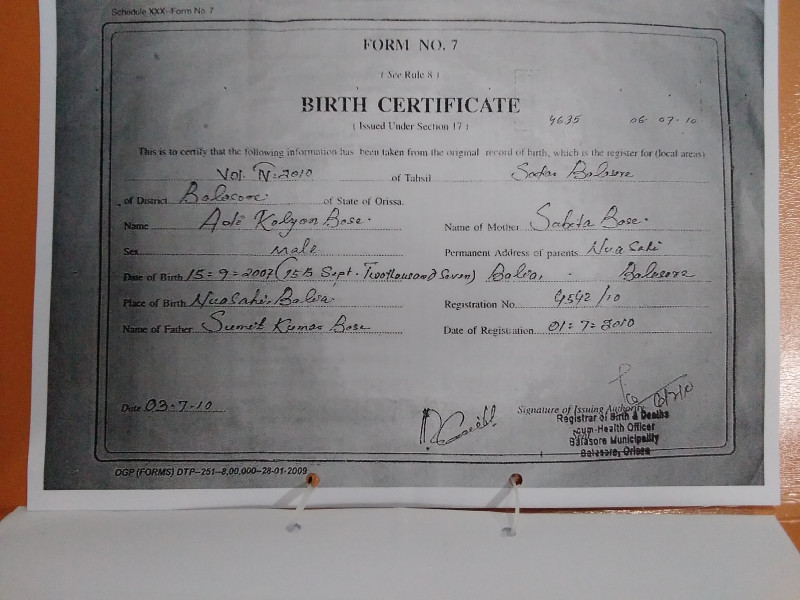 Schedule XXX-Form No. 7
FORM NO. 7
( See Rule 8 )
BIRTH CERTIFICATE
( Issued Under Section 17 )
4635 06-07-10
This is to certify that the following information has been taken from the original record of birth, which is the register for (local areas)
Vol. IV-2010 of Tahsil Sadar Balasore
of District Balasore of State of Orissa.
Name Adi Kalyan Bose. Name of Mother Sabita Bose.
Sex Male Permanent Address of parents Nua Sahi
Date of Birth 15-9-2007 (15th Sept. Twothousand Seven) Balia, - Balasore
Place of Birth Nuasahi, Balia. Registration No. 4542/10
Name of Father Sumit Kumar Bose Date of Registration 01-7-2010
Date 03-7-10 Signature of Issuing Authority
Registrar of Birth & Deaths
cum-Health Officer
Balasore Municipality
Balasore, Orissa
OGP (FORMS) DTP-251-8,00,000-28-01-2009